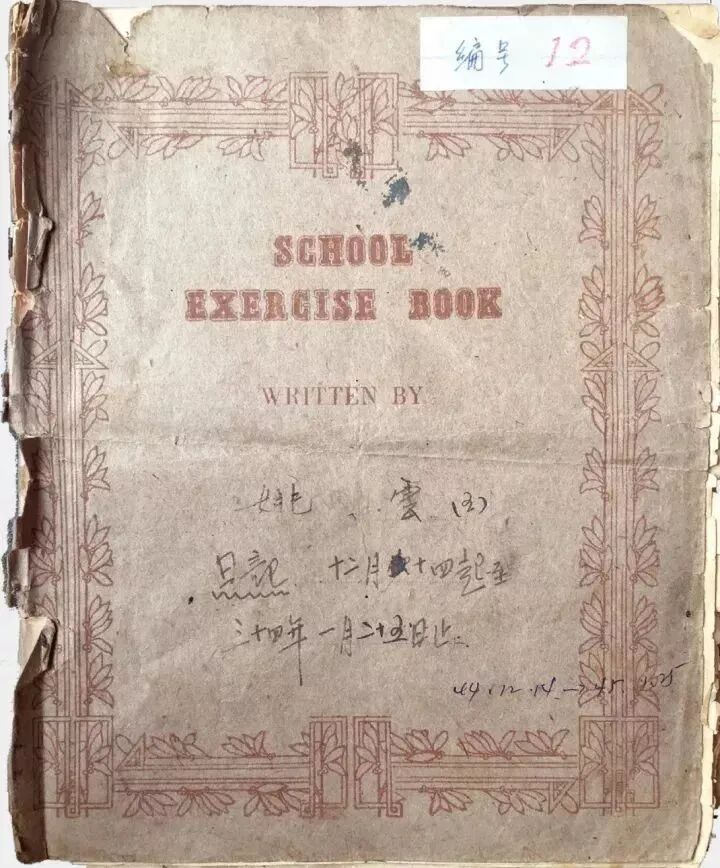 编号 12
SCHOOL
EXERCISE BOOK
WRITTEN BY
姚 雲 (五)
日記 十二月十四起至
三十四年一月二十五日止
44.12.14→45.